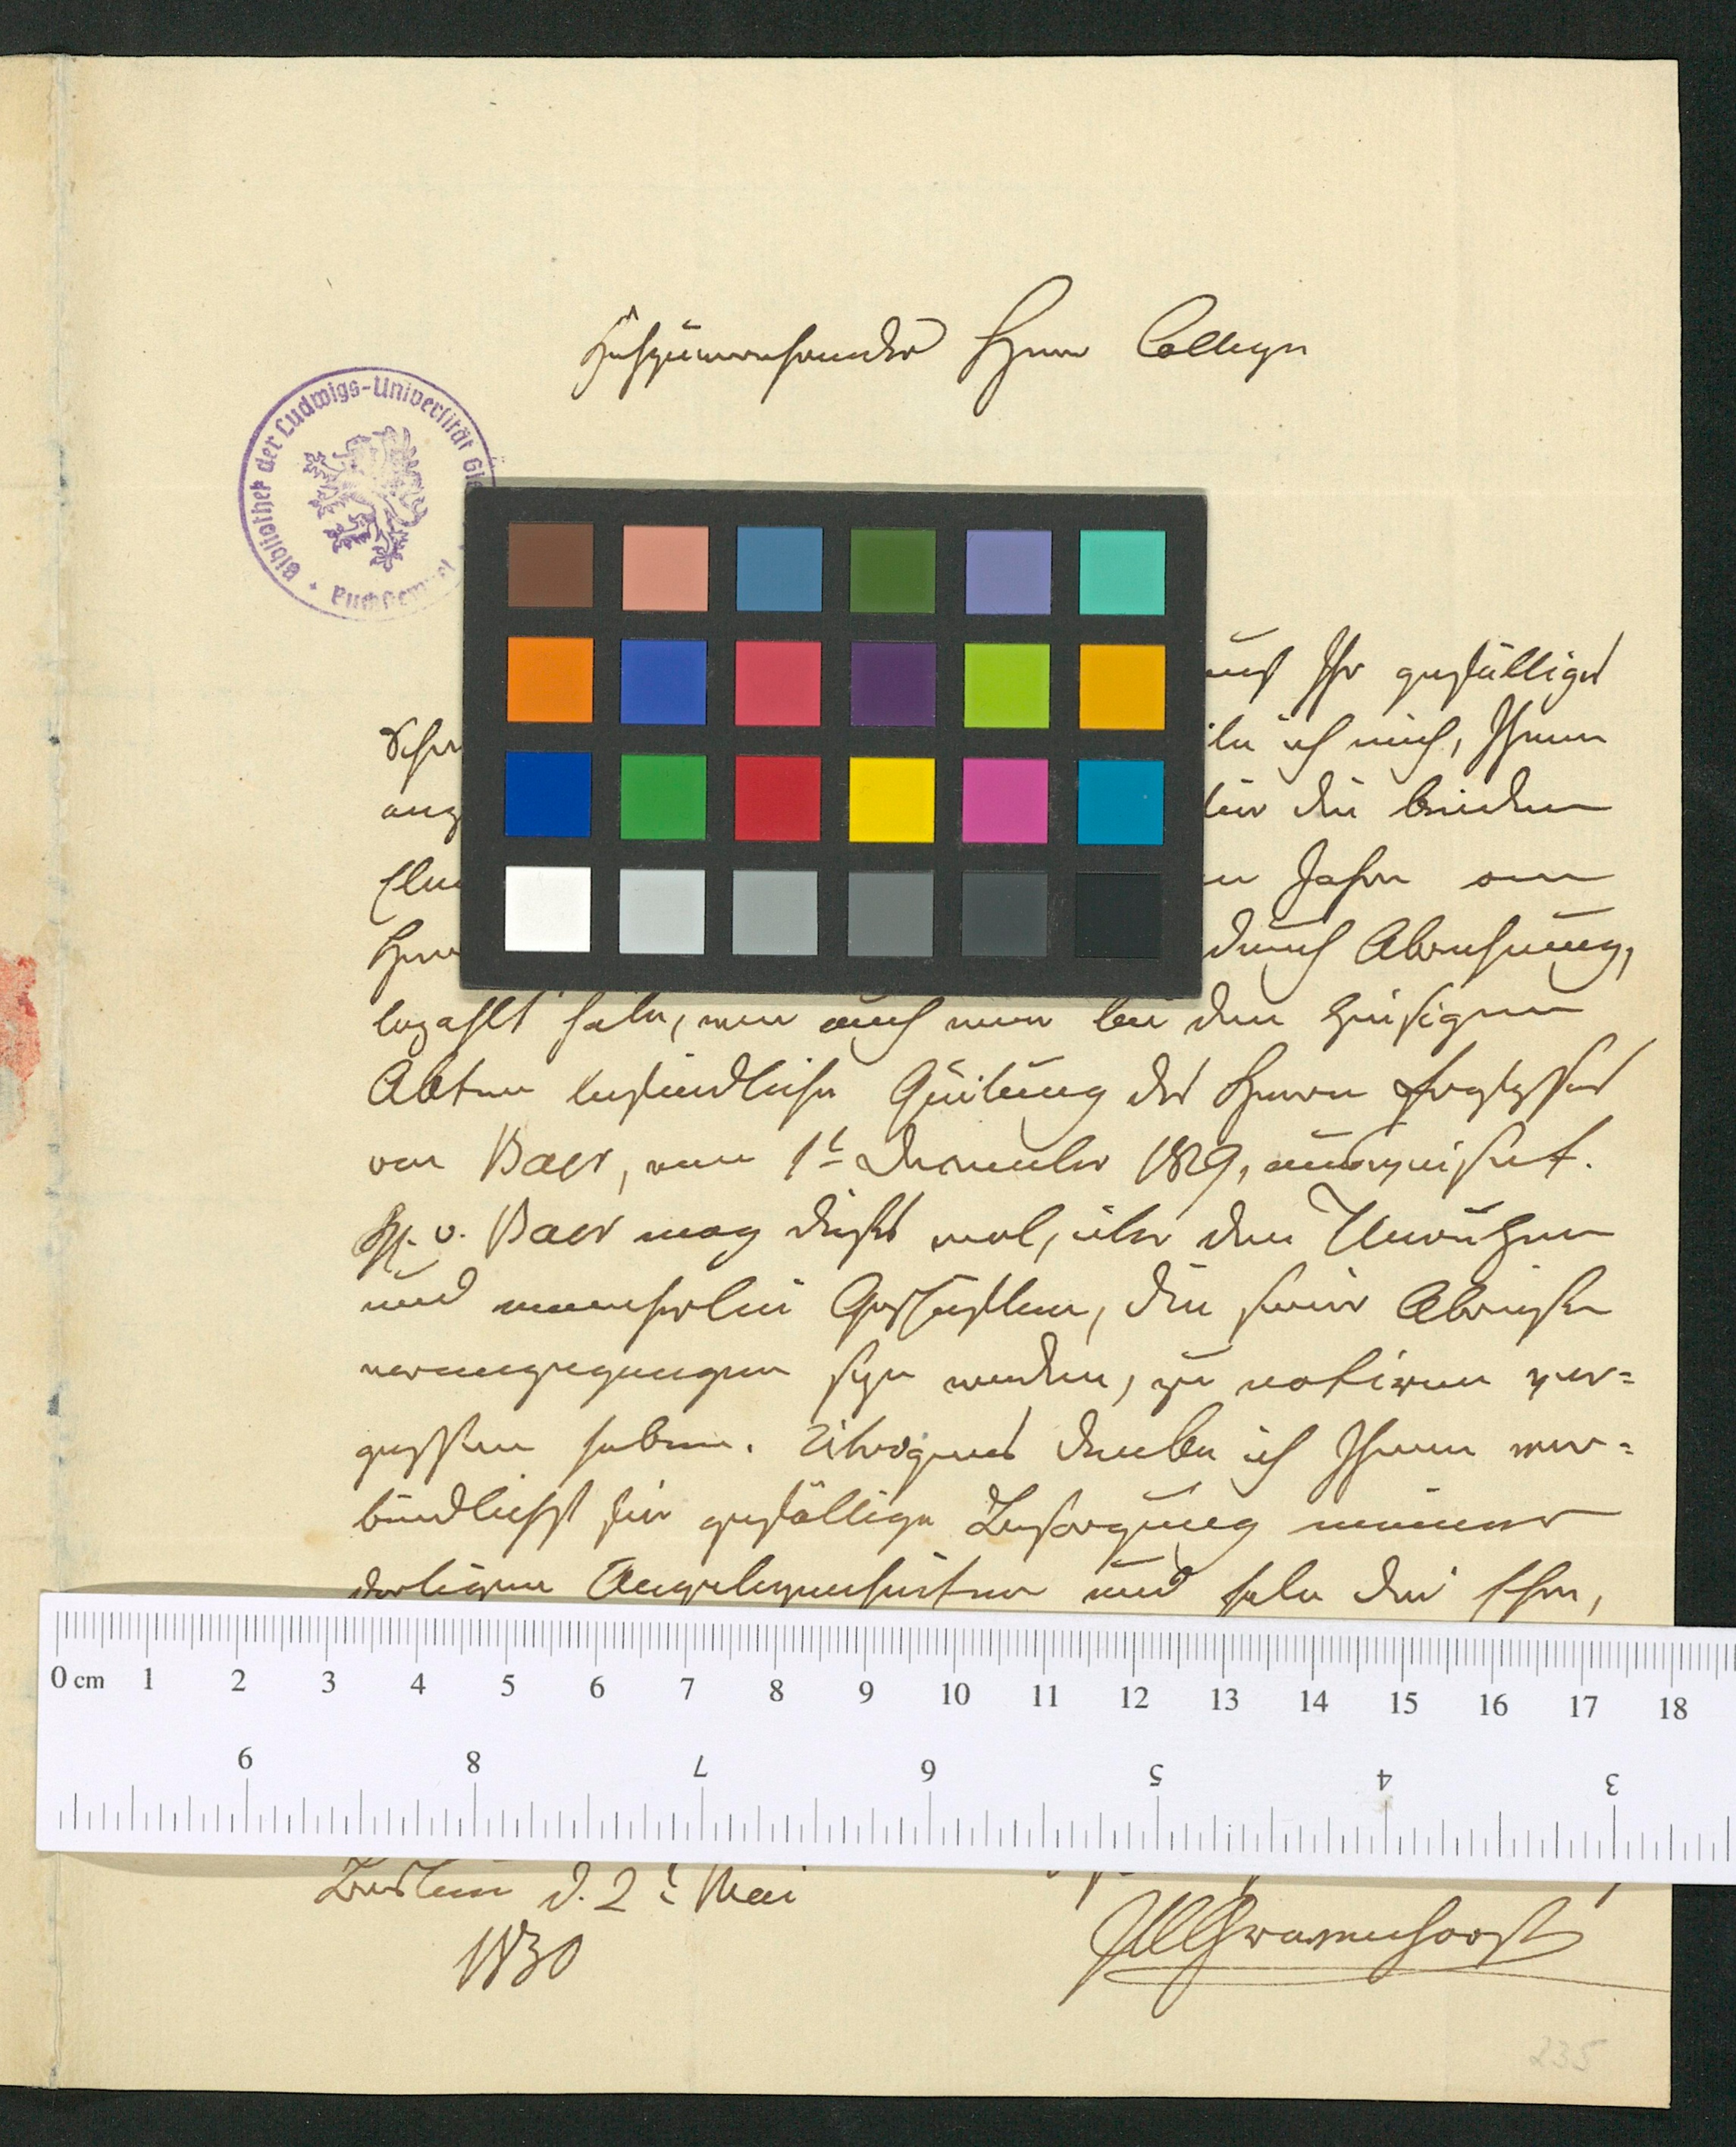 Hochzuverehrender Herr College
Bibliothek der Ludwigs-Universität Gie
auf Ihr gefälliges
Schr
ile ich mich, Ihnen
ang
für die beiden
Ele
n Jahre an
Herr
durch Abrechnung,
bezahlt habe, wie auch eine bei den hiesigen
Akten befindliche Quitung des Herrn Professors
von Baer, vom 1t December 1829, ausweiset.
Hr. v. Baer mag dieses wol, über den Unruhen
und mancherlei Geschäften, die seiner Abreise
vorangegangen seyn werden, zu notiren ver=
gessen haben. Uebrigens danke ich Ihnen ver=
bindlichst für gefällige Besorgung meiner
dortigen Angelegenheiten und habe die Ehre,
0 cm 1 2 3 4 5 6 7 8 9 10 11 12 13 14 15 16 17 18
9 8 7 6 5 4 3
Breslau d. 2t Mai
1830
JLCGravenhorst
235